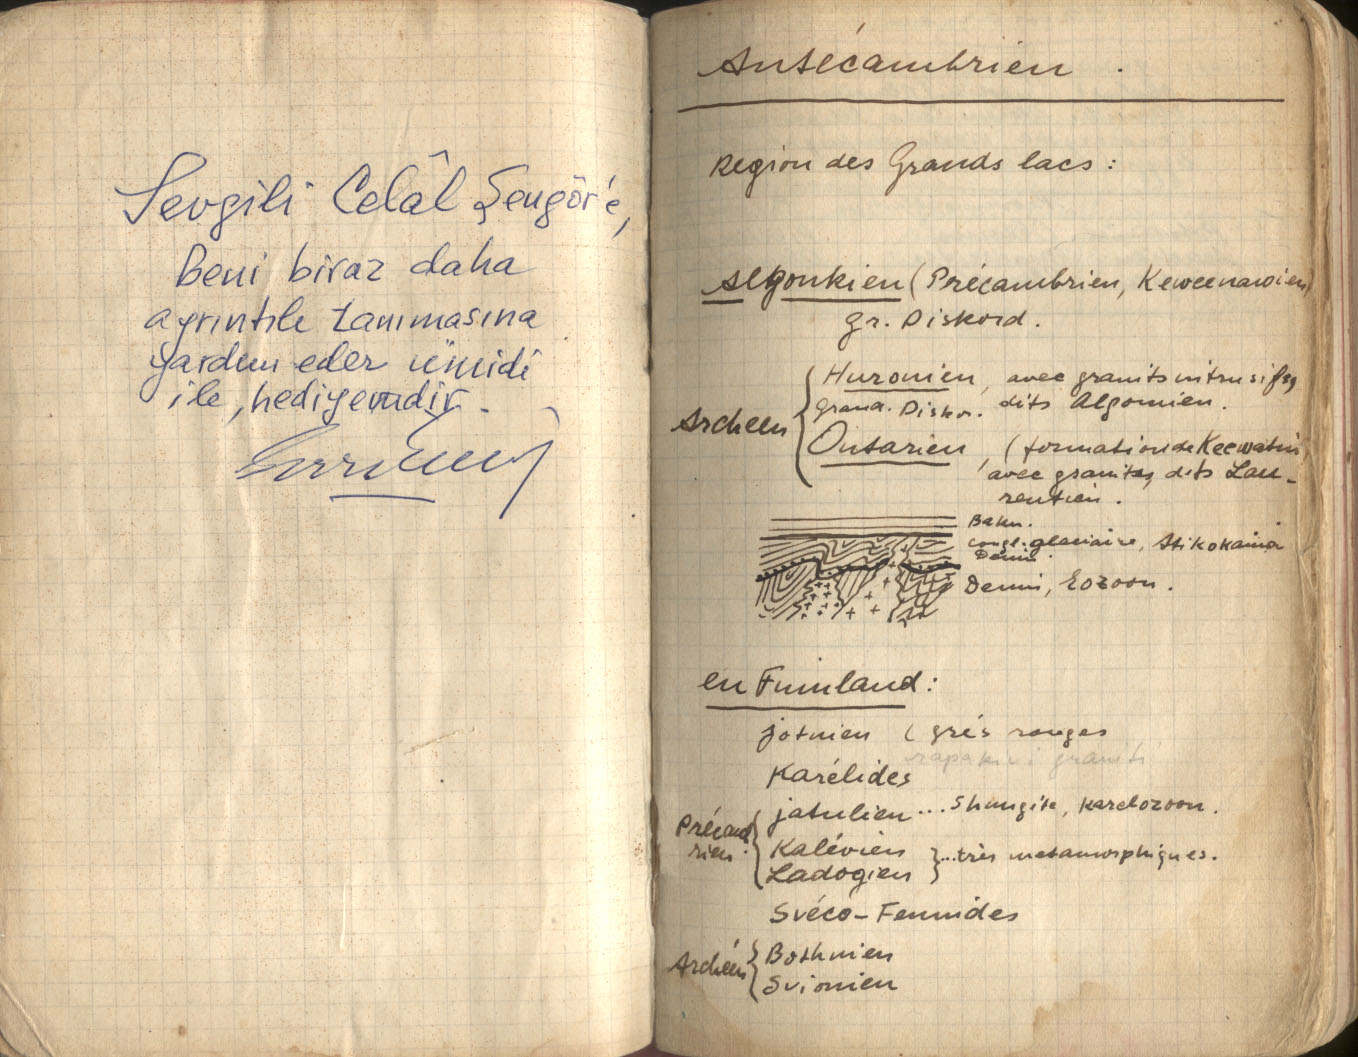 Sevgili Celâl Şengör'e,
Beni biraz daha
ayrıntıle tanımasına
yardım eder ümidi
ile, hediyemdir.
Antécambrien.
Region des Grands lacs:
Algonkien (Précambrien, Keweenawien)
gr. Diskord.
Huronien, avec granits intrusifs,
Grand. Diskor. dits Algomien.
Archéen
Ontarien, (formation de Keewatin,
avec granites, dits Lau-
rentien.
congl. glaciaire, Atikokania
Denni, Eozoon.
en Finnland:
jotnien (grés rouges
rapakivi graniti
Karélides
jatulien ... Shungite, Karelozoon.
Précamb
rien.
Kalévien
...très metamorphiques.
Ladogien
Svéco-Fennides
Archéen
Bothnien
Svionien